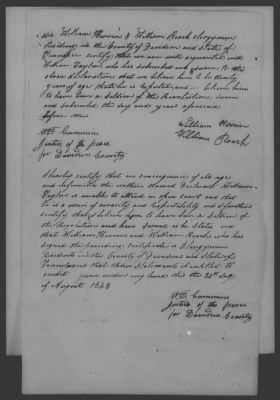 We William Horn & William Roach clergymen
residing in the County of Davidson and State of
Tennessee certify that we are well acquainted with
William Taylor who has subscribed and sworn to the
above declaration that we believe him to be Ninety
years of age that he is reputed and believe him
to have been a soldier of the Revolution, Sworn
and subscribed the day and year aforesaid
before me
William
William Roach
Wm Cummins
Justice of the peace
for Davidson County
I hereby certify that in consequence of old age
and infirmity the within named
Taylor is unable to attend in open court and that he
is a man of veracity and respectability and I further
certify that I believe him to have been a Soldier of
the Revolution and have served as he states and
that William and William Roach who has
signed the certificate is Clergymen
residents in the County of Davidson and State of
Tennessee that their Statements is entitled to
credit given under my hand this the 28th day
of August 1843
Wm Cummins
Justice of the peace
for Davidson County